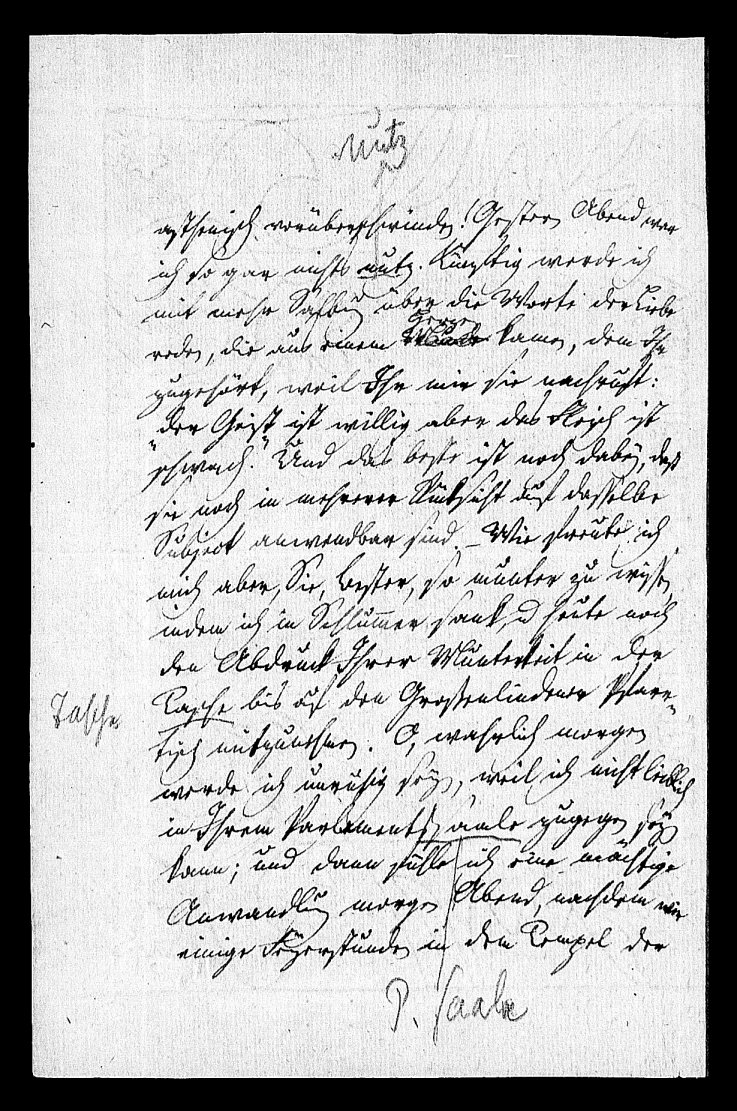 nutz
asthenisch vorüberschwinden! Gestern Abend war
ich so gar nichts nutz. Künftig werde ich
mit mehr über die Worte der Liebe
reden, die aus einem Herzen kamen, dem Ihr
zugehört, weil Ihr mir sie nachruft:
"der Geist ist willig aber das Fleisch ist
schwach." Und das beste ist noch dabey, daß
sie noch in mehrerer Rücksicht auf dasselbe
Subject anwendbar sind – Wie freute ich
mich aber, Sie, Bester, so munter zu wissen,
indem ich in Schlummer sank, u heute noch
den Abdruck Ihrer Munterkeit in der
Tasche
Tasche bis auf den Großenlindener Pfarr-
tisch mitzunehmen. O, wahrlich morgen
werde ich unruhig seyn, weil ich nicht leiblich
in Ihrem Parlamentssaale zugegen seyn
kann; und dann fühle ich eine mächtige
Anwandlung morgen Abend, nachdem wir
einige Feyerstunden in dem Tempel der
P. saale